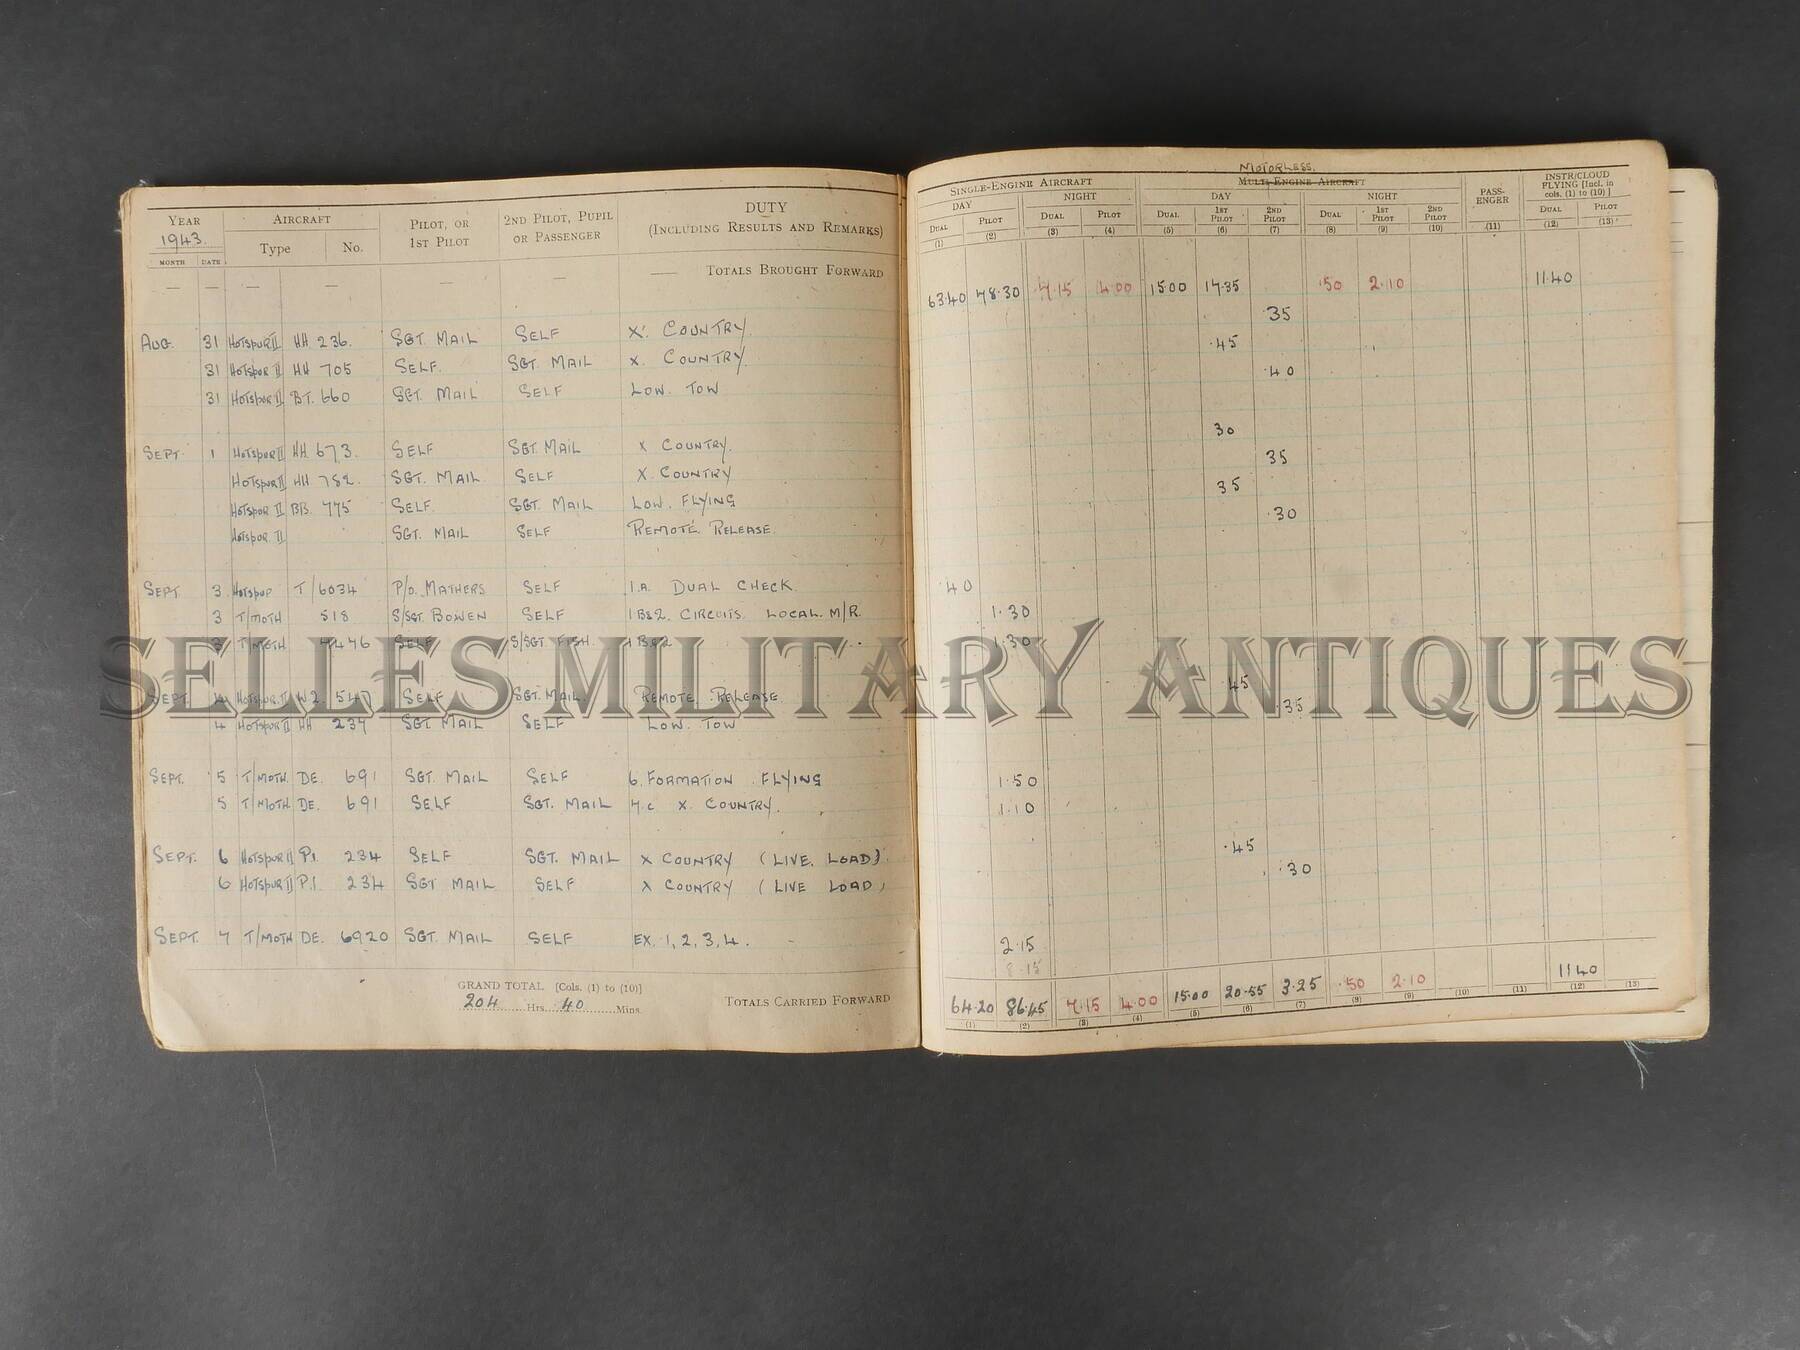 YEAR AIRCRAFT PILOT, OR 1ST PILOT 2ND PILOT, PUPIL OR PASSENGER DUTY (INCLUDING RESULTS AND REMARKS)
1943. Type No.
MONTH DATE
— — — — — — TOTALS BROUGHT FORWARD
AUG. 31 HOTSPUR II HH 236. SGT. MAIL SELF X. COUNTRY.
31 HOTSPUR II HH 705 SELF. SGT. MAIL X. COUNTRY.
31 HOTSPUR II BT. 660 SGT. MAIL SELF LOW. TOW
SEPT. 1 HOTSPUR II HH. 673. SELF SGT. MAIL X COUNTRY.
HOTSPUR II HH 782. SGT. MAIL SELF X. COUNTRY
HOTSPUR II BB. 775 SELF. SGT. MAIL LOW. FLYING
HOTSPUR II SGT. MAIL SELF REMOTE RELEASE.
SEPT. 3 HOTSPUR T/6034 P/O. MATHERS SELF 1.A. DUAL CHECK
3 T/MOTH 518 S/SGT. BOWEN SELF 1 B&2. CIRCUITS. LOCAL. M/R.
3 T/MOTH 7446 SELF S/SGT. FISH. 1 B&2
SEPT. 4 HOTSPUR II SELF SGT. MAIL. REMOTE RELEASE
4 HOTSPUR II HH 237 SGT MAIL SELF LOW. TOW
SEPT. 5 T/MOTH. DE. 691 SGT. MAIL SELF 6. FORMATION. FLYING
5 T/MOTH. DE. 691 SELF SGT. MAIL 7.c X. COUNTRY.
SEPT. 6 HOTSPUR II P.1. 234 SELF SGT. MAIL X COUNTRY (LIVE. LOAD).
6 HOTSPUR II P.1. 234 SGT MAIL SELF X COUNTRY (LIVE LOAD)
SEPT. 7 T/MOTH DE. 6920 SGT. MAIL SELF EX. 1, 2, 3, 4.
GRAND TOTAL [Cols. (1) to (10)]
204 Hrs. 40 Mins.
TOTALS CARRIED FORWARD
MOTORLESS.
SINGLE-ENGINE AIRCRAFT MULTI-ENGINE AIRCRAFT PASS-ENGER INSTR/CLOUD FLYING [Incl. in cols. (1) to (10)]
DAY NIGHT DAY NIGHT
DUAL PILOT DUAL PILOT DUAL 1ST PILOT 2ND PILOT DUAL 1ST PILOT 2ND PILOT DUAL PILOT
(1) (2) (3) (4) (5) (6) (7) (8) (9) (10) (11) (12) (13)
63.40 78.30 7.15 4.00 15.00 17.35 .50 2.10 11.40
35
.45
.40
30
35
35
.30
40
1.30
1.30
45
.35
1.50
1.10
.45
.30
2.15
8.15
64.20 86.45 7.15 4.00 15.00 20.55 3.25 .50 2.10 11.40
(1) (2) (3) (4) (5) (6) (7) (8) (9) (10) (11) (12) (13)
SELLES MILITARY ANTIQUES